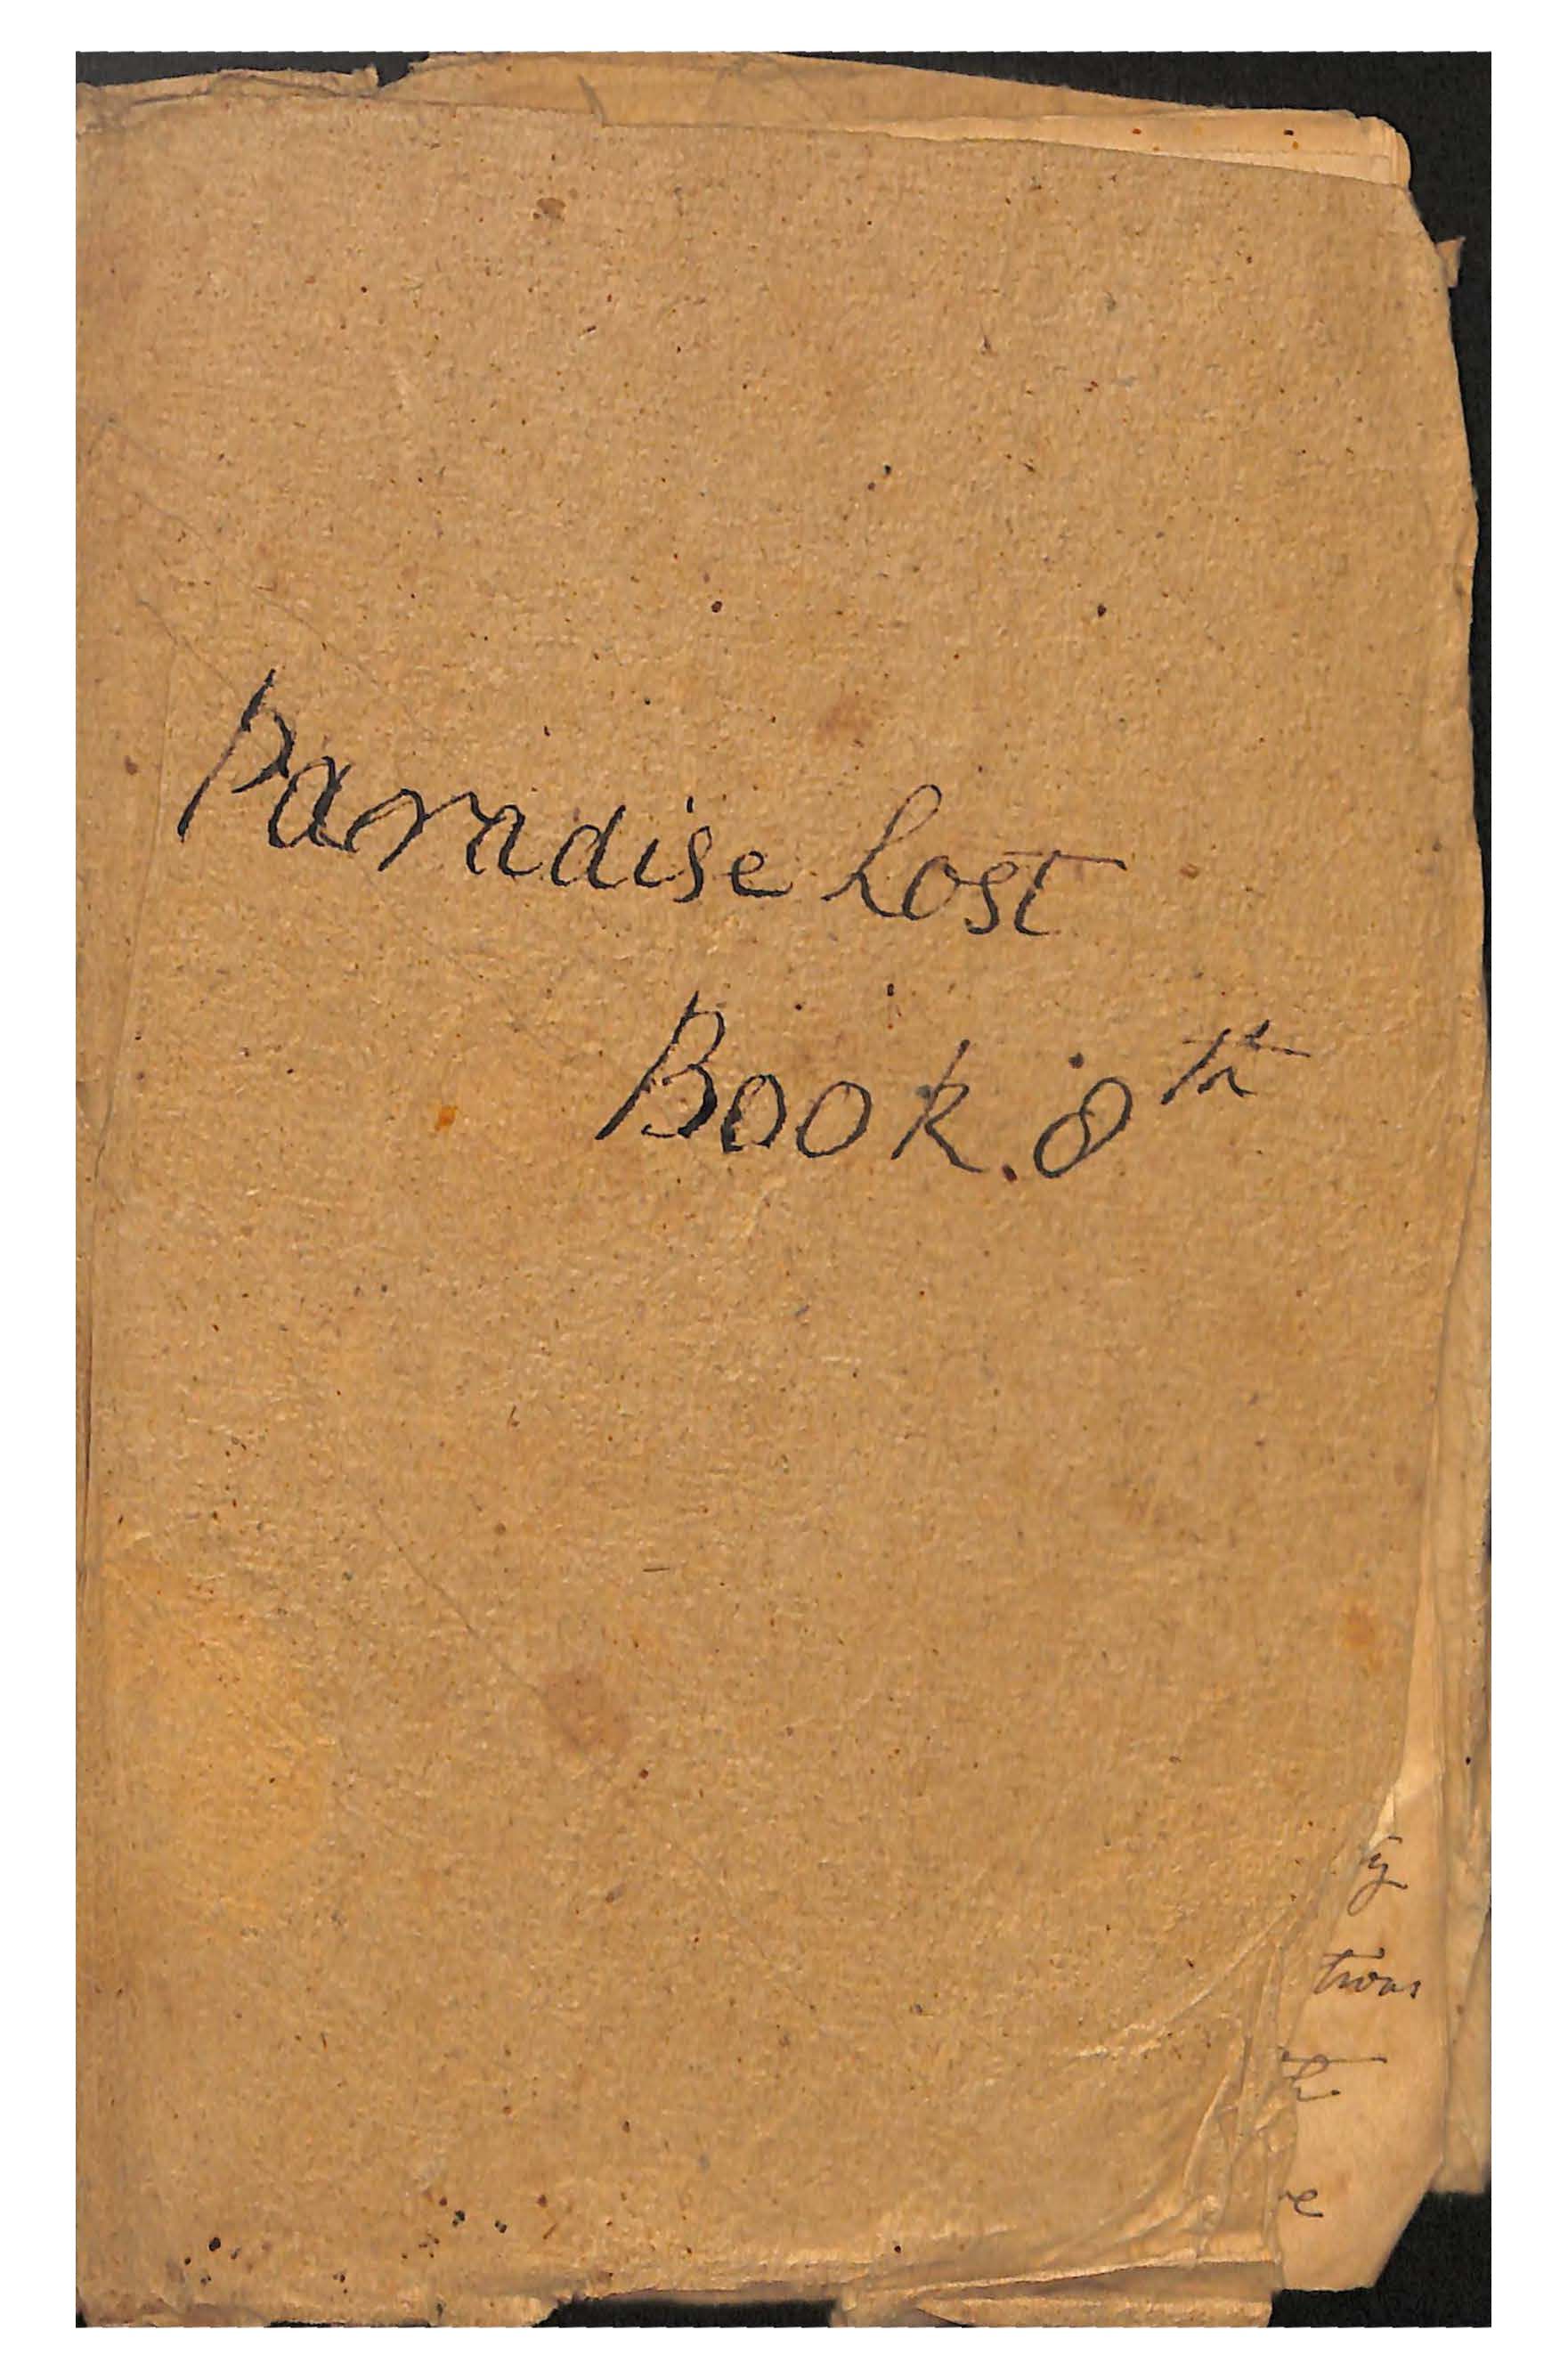 Paradise Lost
Book. 8th
y
tions
e